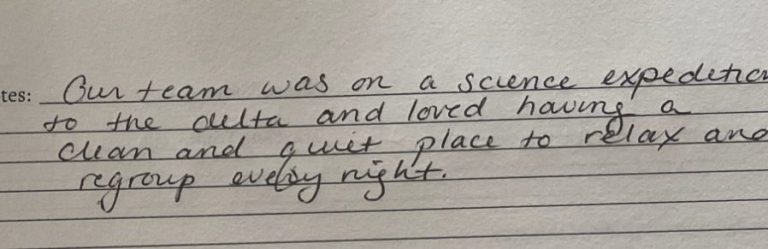 tes: Our team was on a science expedition
to the delta and loved having a
clean and quiet place to relax and
regroup every night.